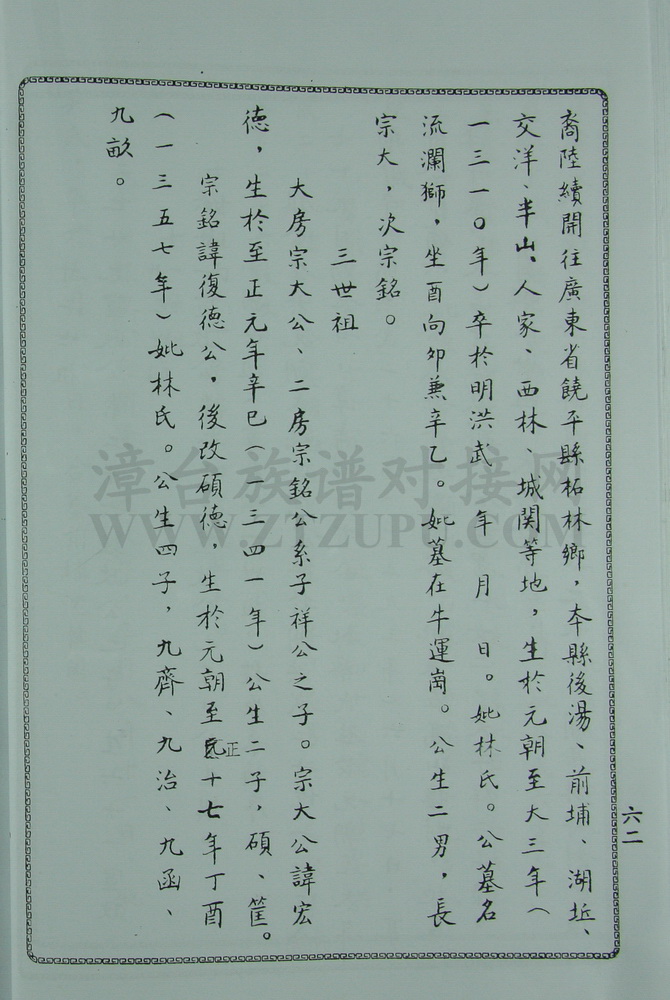 裔陸續開往廣東省饒平縣柘林鄉，本縣後湯、前埔、湖坵、
交洋、半山、人家、西林、城関等地，生於元朝至大三年（
一三一〇年）卒於明洪武　年　月　日。妣林氏。公墓名
流瀾獅，坐酉向卯兼辛乙。妣墓在牛運崗。公生二男，長
宗大，次宗銘。
三世祖
大房宗大公、二房宗銘公系子祥公之子。宗大公諱宏
德，生於至正元年辛巳（一三四一年）公生二子，碩、筐。
宗銘諱復德公，後改碩德，生於元朝至正十七年丁酉
（一三五七年）妣林氏。公生四子，九齊、九治、九函、
九畝。
六二
漳台族谱对接网
WWW.ZTZUPU.COM